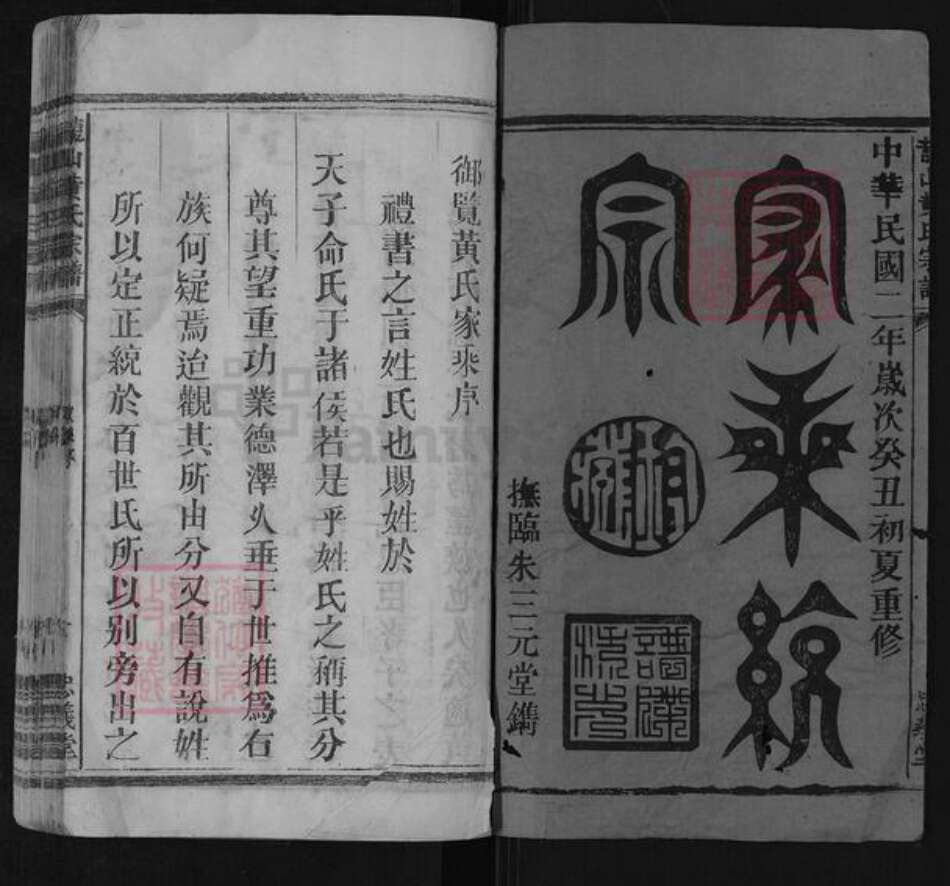 中華民國二年歲次癸丑初夏重修
家乘統
宗
撫臨朱三元堂鐫
御覽黃氏家乘序
禮書之言姓氏也賜姓於
天子命氏于諸侯若是乎姓氏之稱其分
尊其望重功業德澤乆垂于世推為右
族何疑焉迨觀其所由分又自有說姓
所以定正統於百世氏所以别旁出之
山黃氏宗譜
忠義堂